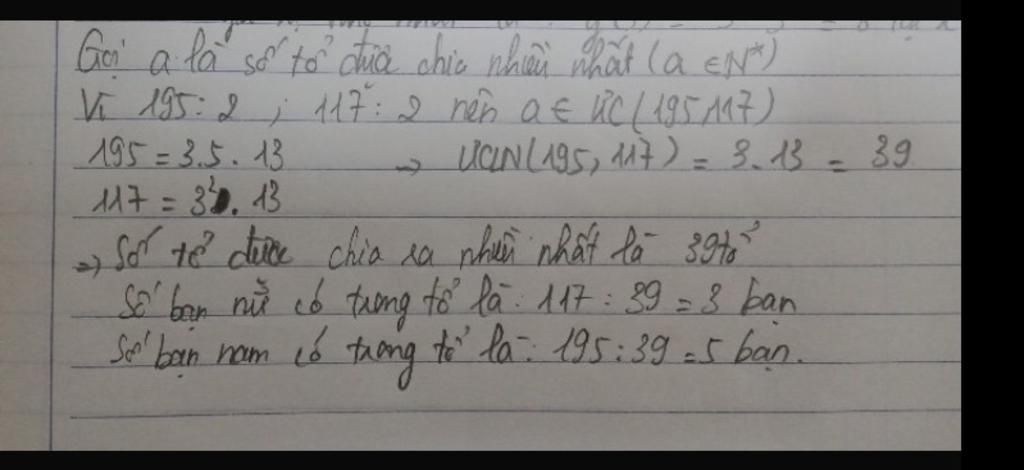 Gọi a là số tổ được chia nhiều nhất (a ∈ N*)
Vì 195 : 2 ; 117 : 2 nên a ∈ ƯC(195,117)
195 = 3.5.13 → ƯCLN(195, 117) = 3.13 = 39
117 = 3². 13
⇒ Số tổ được chia ra nhiều nhất là 39 tổ
Số bạn nữ có trong tổ là: 117 : 39 = 3 bạn
Số bạn nam có trong tổ là: 195 : 39 = 5 bạn.